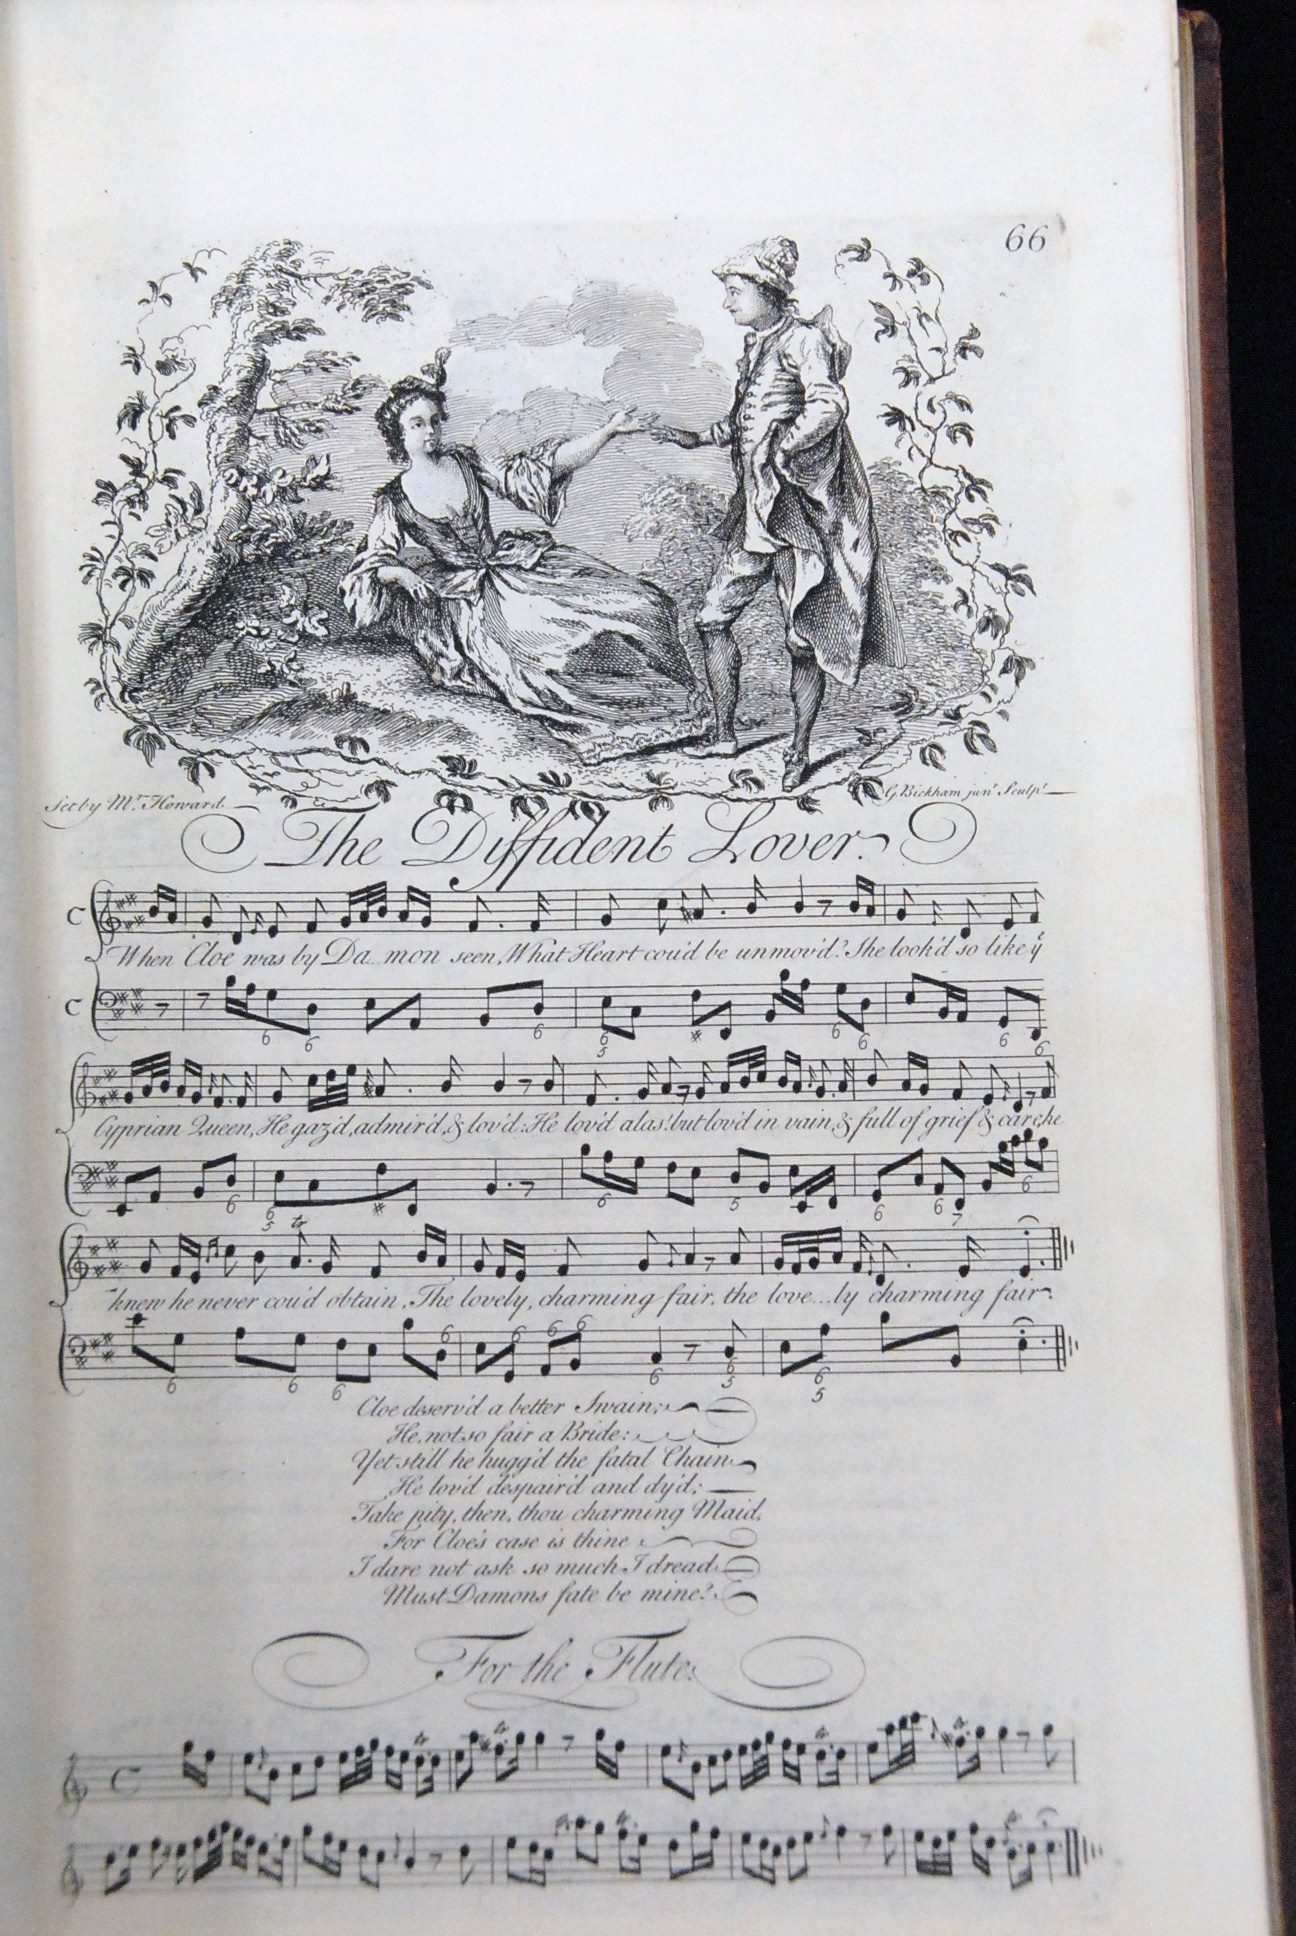 66
Set by Mr. Howard
G. Bickham junr. Sculpt.
The Diffident Lover.
When Cloe was by Da mon seen, What Heart cou'd be unmov'd? She look'd so like ye
6 6 6 6 5 # 6 6 6 6
Cyprian Queen, He gaz'd, admir'd, & lov'd: He lov'd alas! but lov'd in vain, & full of grief & care, he
6 6 5 # 6 5 6 6 7 6
tr
knew he never cou'd obtain, The lovely, charming fair, the love...ly charming fair.
6 6 6 6 6 6 6 6 6 5 6 5
Cloe deserv'd a better Swain;
He, not so fair a Bride:
Yet still he hugg'd the fatal Chain
He lov'd despair'd and dy'd;
Take pity, then, thou charming Maid,
For Cloe's case is thine
I dare not ask so much I dread
Must Damons fate be mine?
For the Flute.